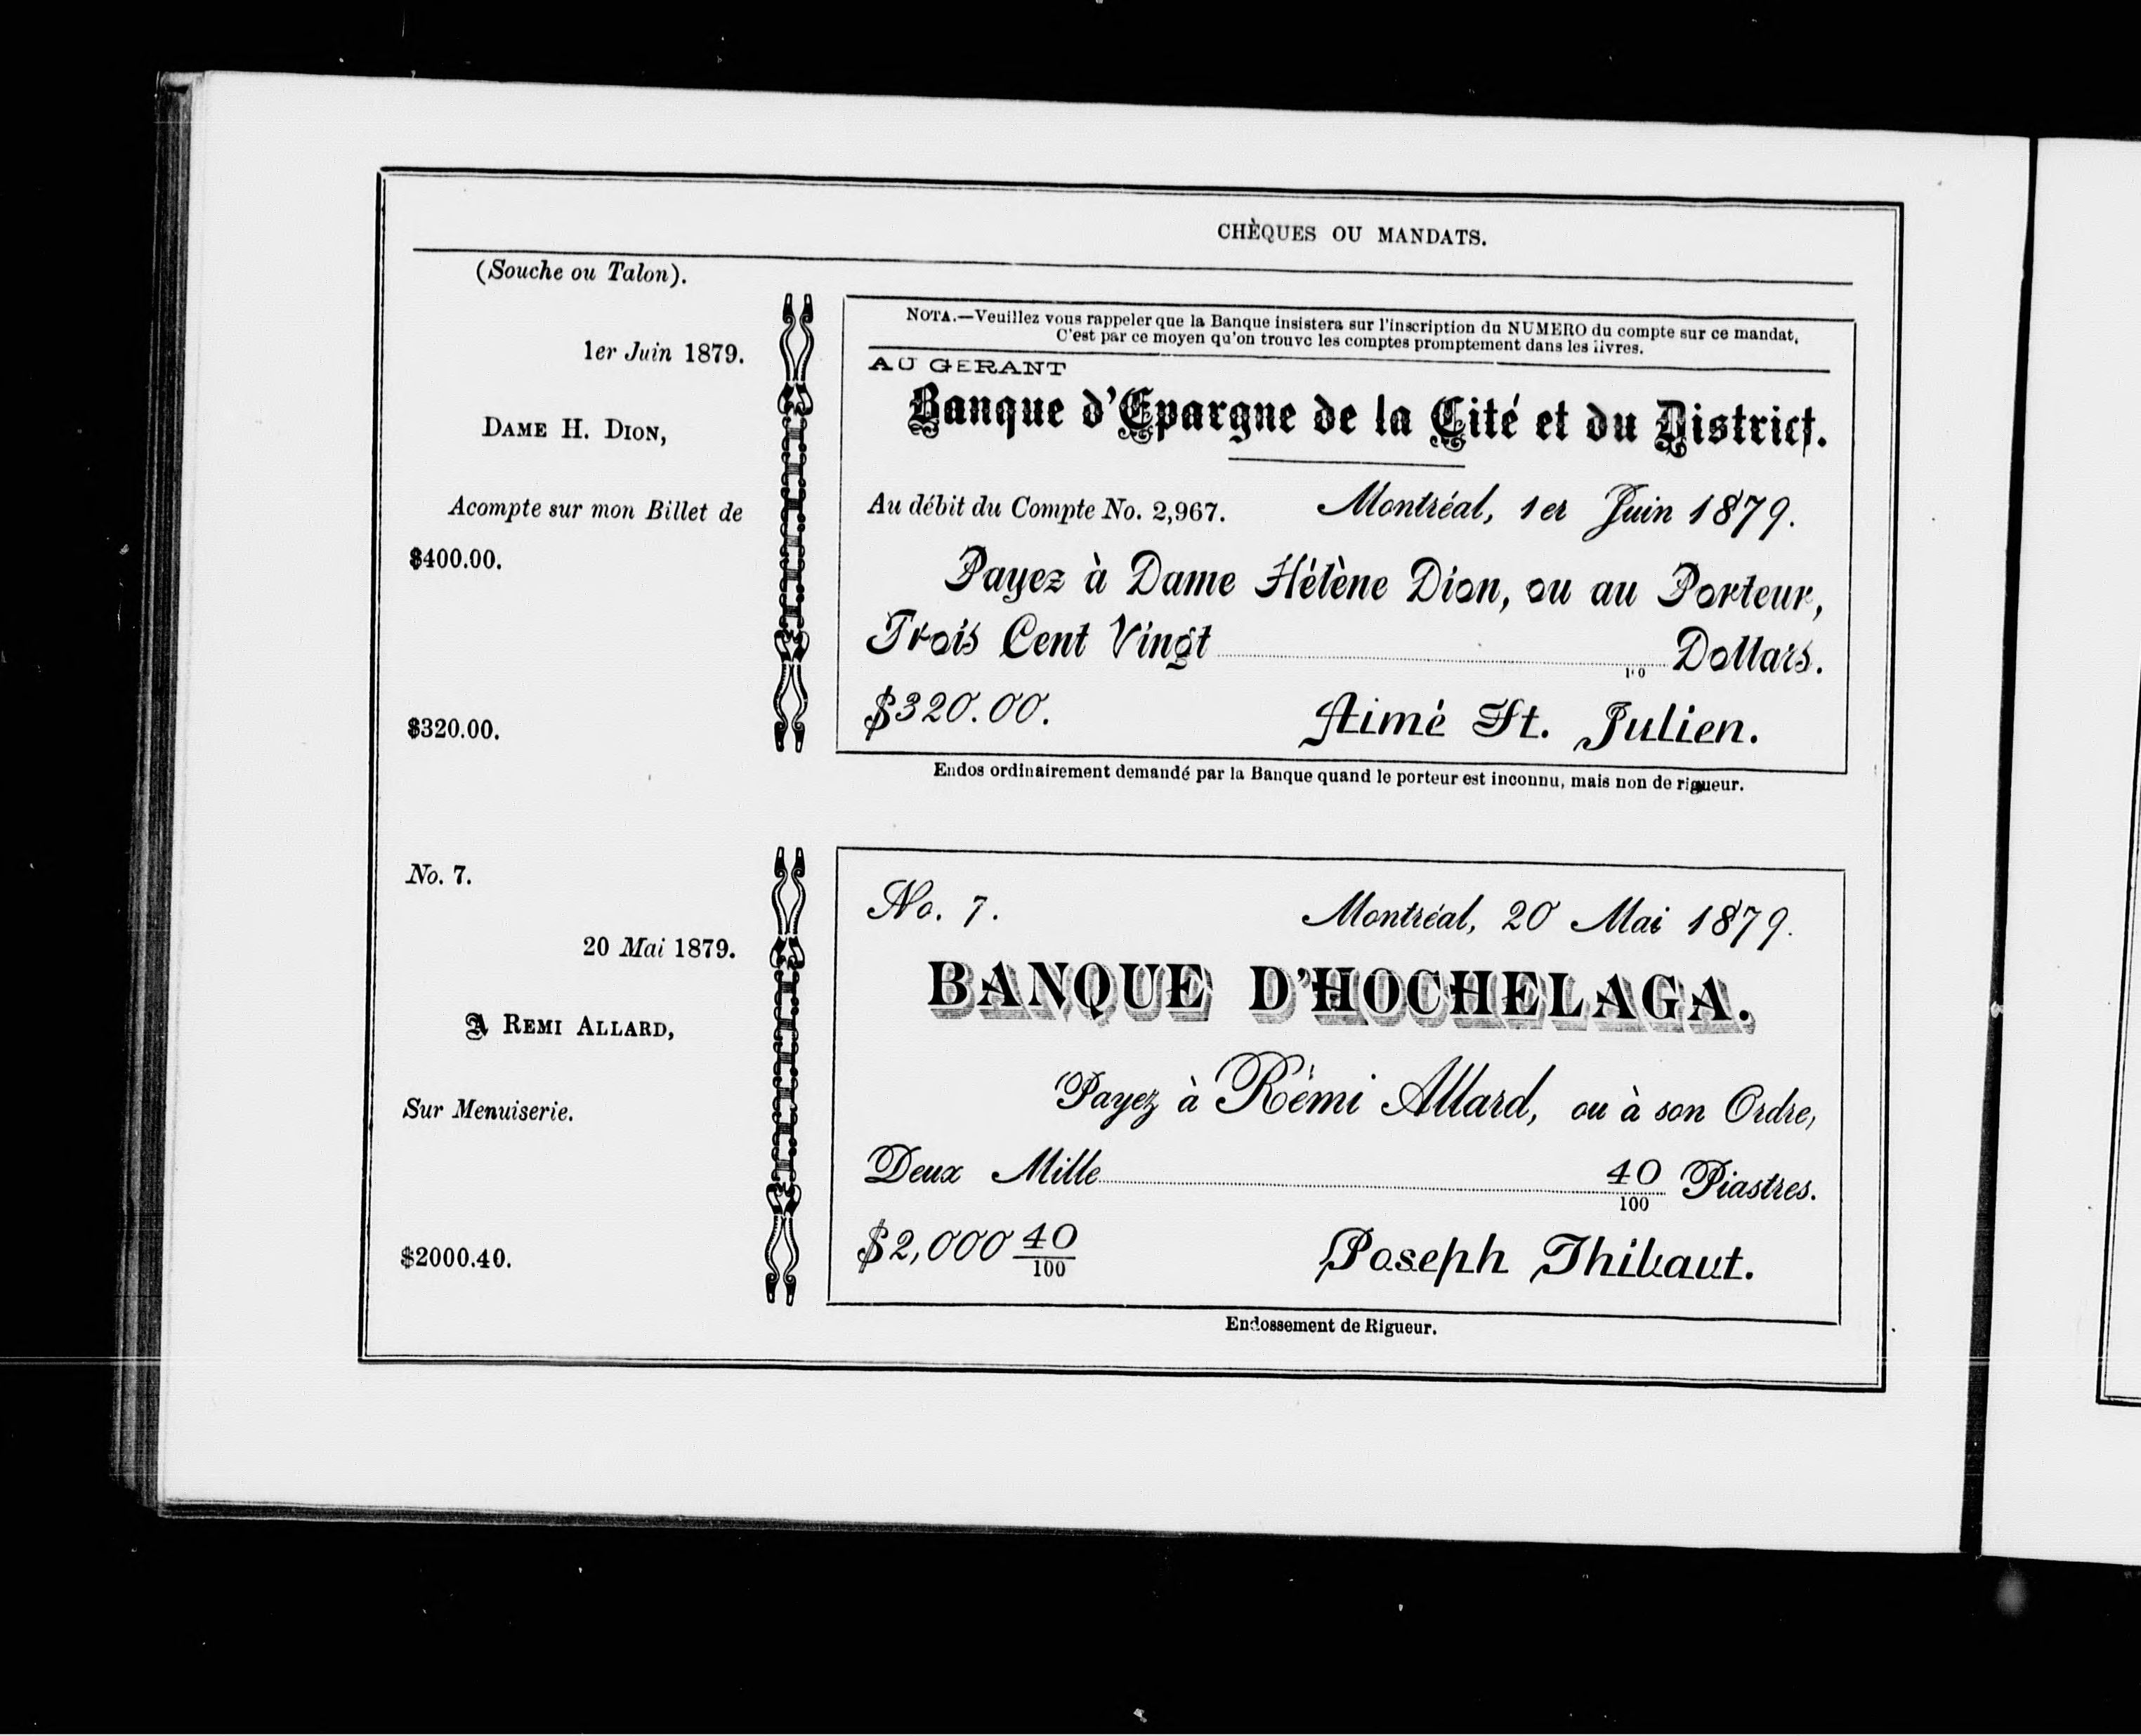 CHÈQUES OU MANDATS.
(Souche ou Talon).
1er Juin 1879.
DAME H. DION,
Acompte sur mon Billet de
$400.00.
$320.00.
NOTA.—Veuillez vous rappeler que la Banque insistera sur l'inscription du NUMERO du compte sur ce mandat,
C'est par ce moyen qu'on trouve les comptes promptement dans les livres.
AU GERANT
Banque d'Epargne de la Cité et du District.
Au débit du Compte No. 2,967. Montréal, 1er Juin 1879.
Payez à Dame Hélène Dion, ou au Porteur,
Trois Cent Vingt Dollars.
$320.00. Aimé St. Julien.
Endos ordinairement demandé par la Banque quand le porteur est inconnu, mais non de rigueur.
No. 7.
20 Mai 1879.
A REMI ALLARD,
Sur Menuiserie.
$2000.40.
No. 7. Montréal, 20 Mai 1879.
BANQUE D'HOCHELAGA.
Payez à Rémi Allard, ou à son Ordre,
Deux Mille 40/100 Piastres.
$2,000 40/100 Joseph Thibaut.
Endossement de Rigueur.